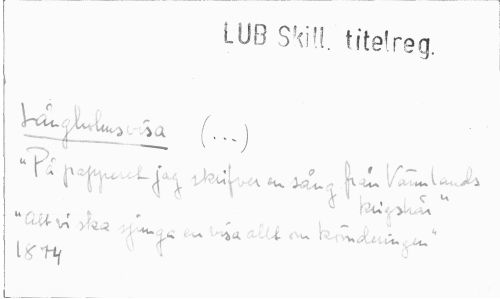 LUB Skill. titelreg.
Långholmsvisa (...)
"På papperet jag skrifver en sång från Värmlands
krigshär"
"Att vi ska sjunga en visa allt om kvinderingen"
1874